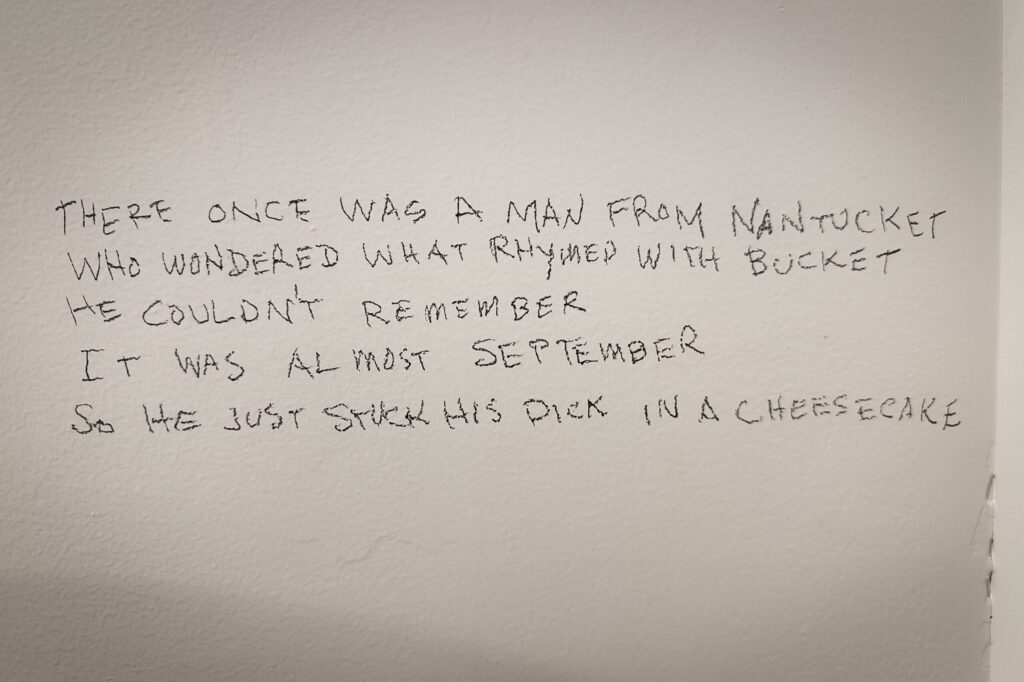 THERE ONCE WAS A MAN FROM NANTUCKET
WHO WONDERED WHAT RHYMED WITH BUCKET
HE COULDN'T REMEMBER
IT WAS ALMOST SEPTEMBER
SO HE JUST STUCK HIS DICK IN A CHEESECAKE